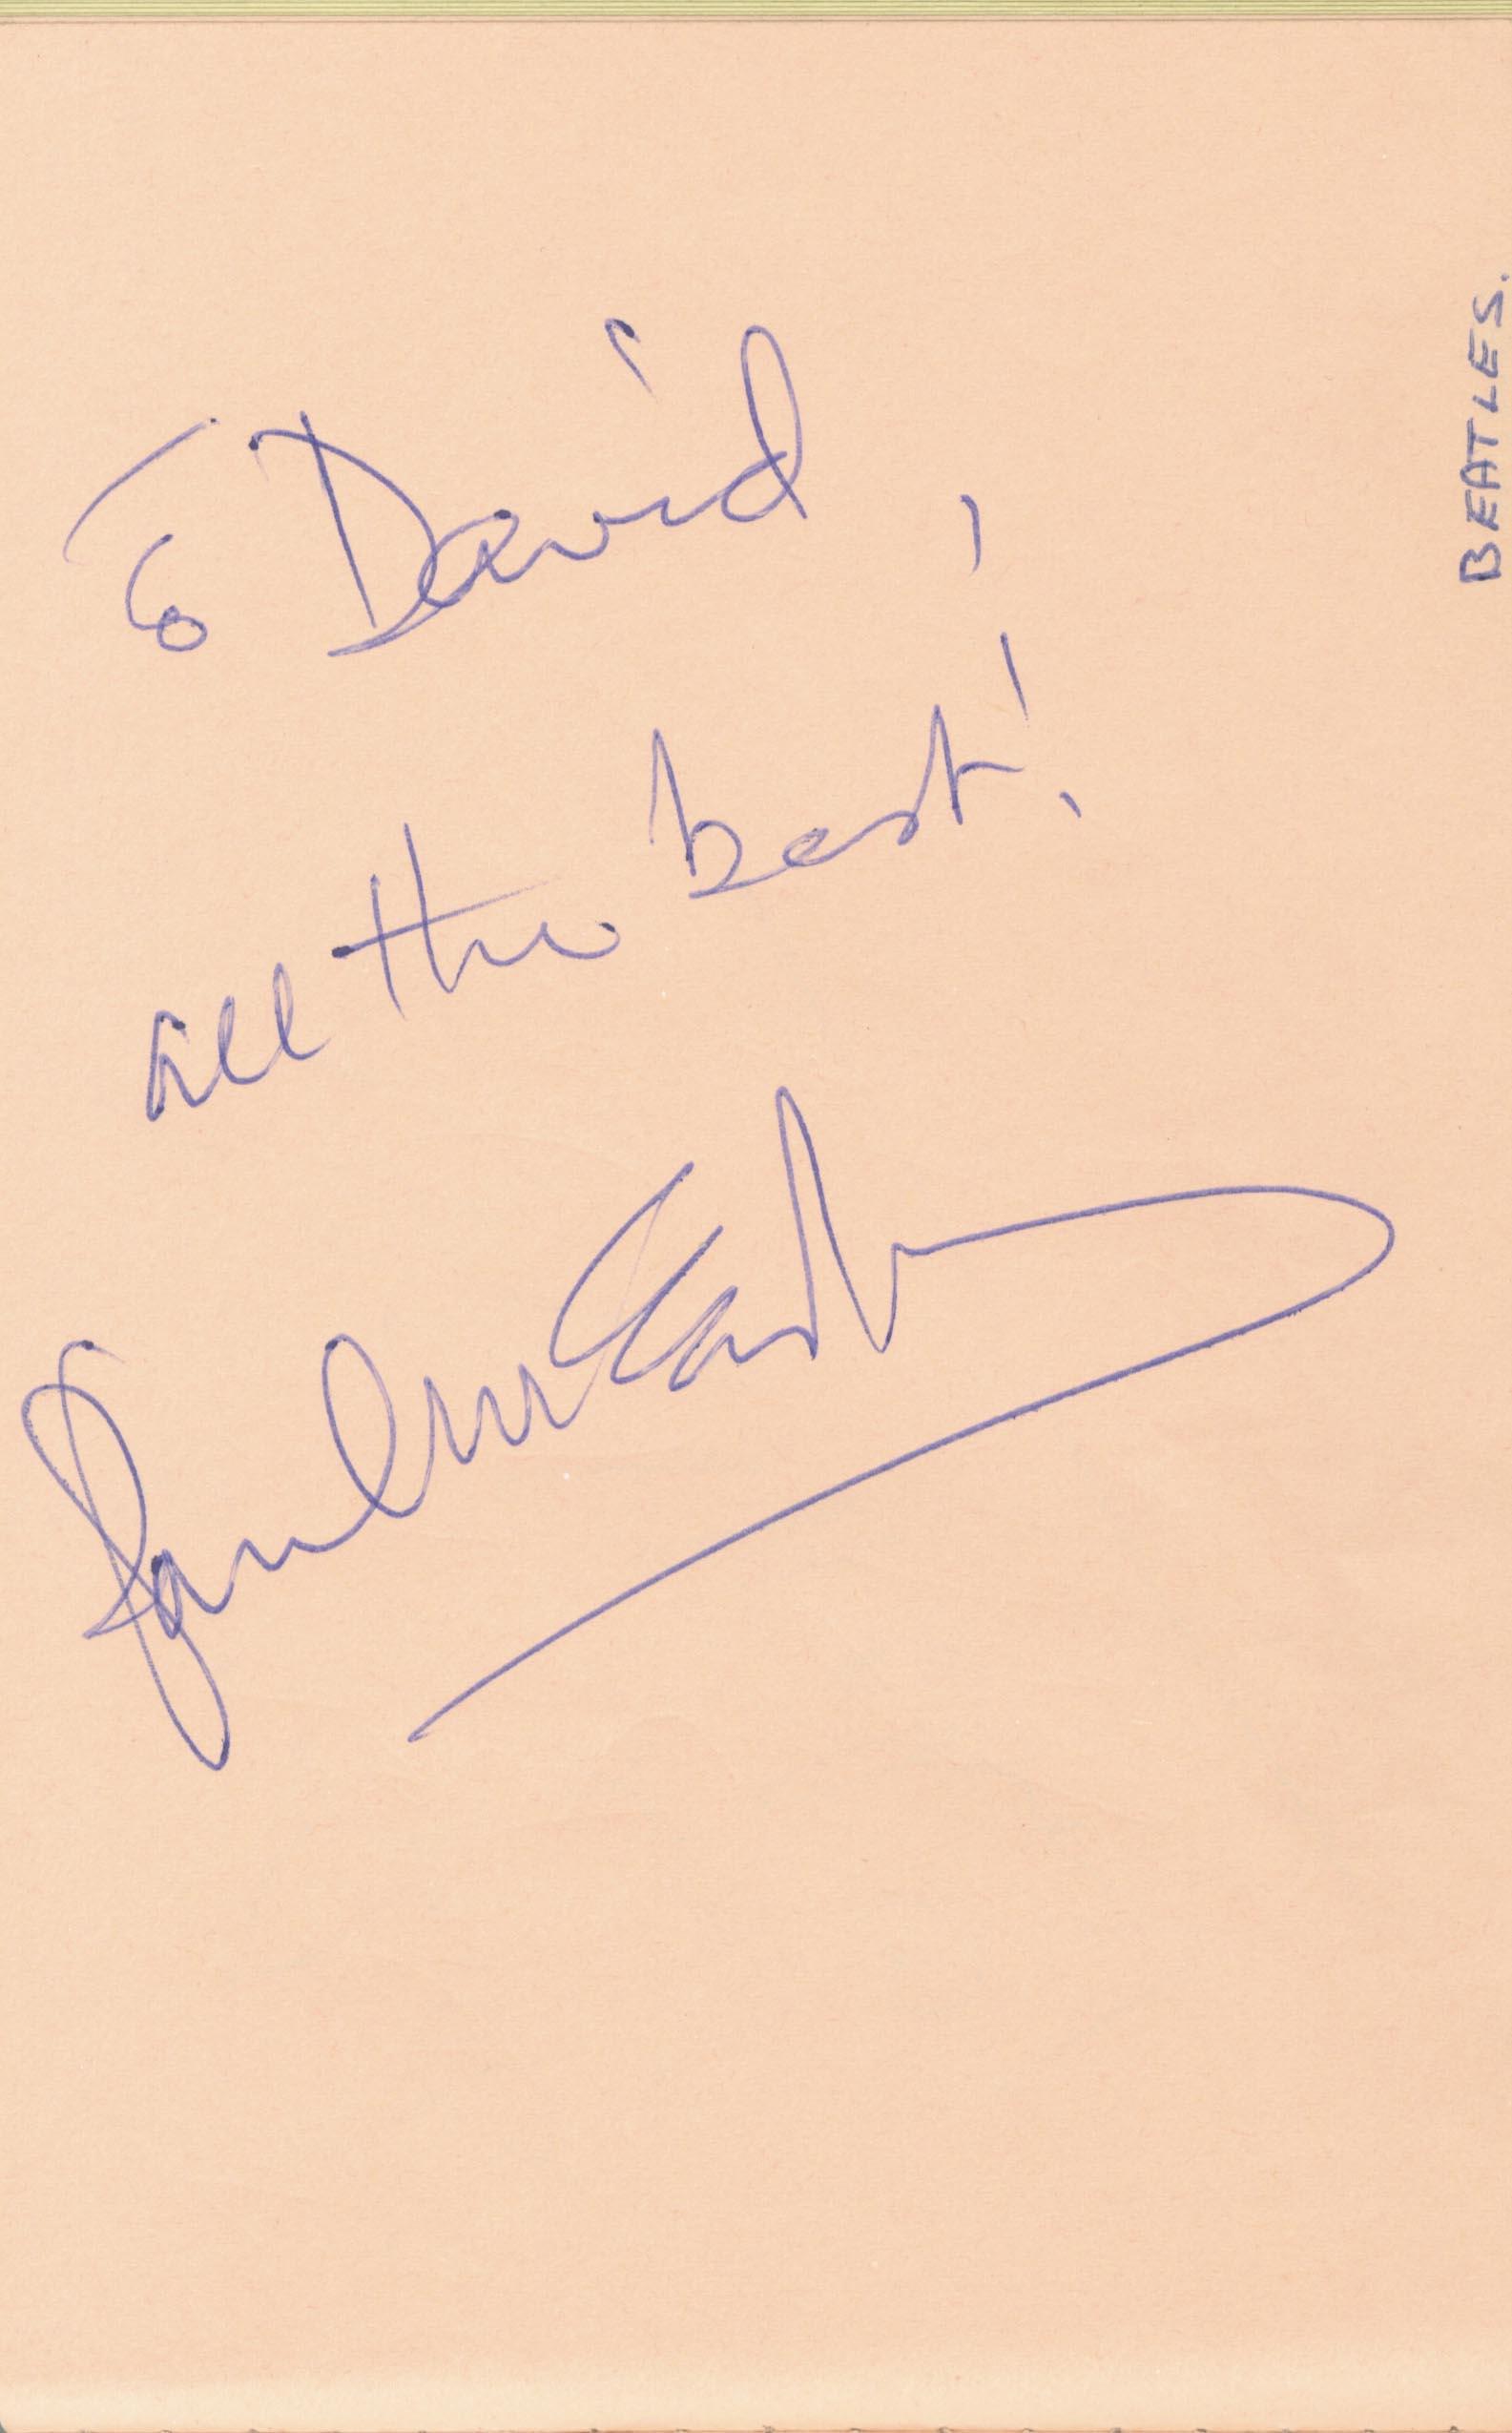 To David,
all the best!
Paul McCartney
BEATLES.